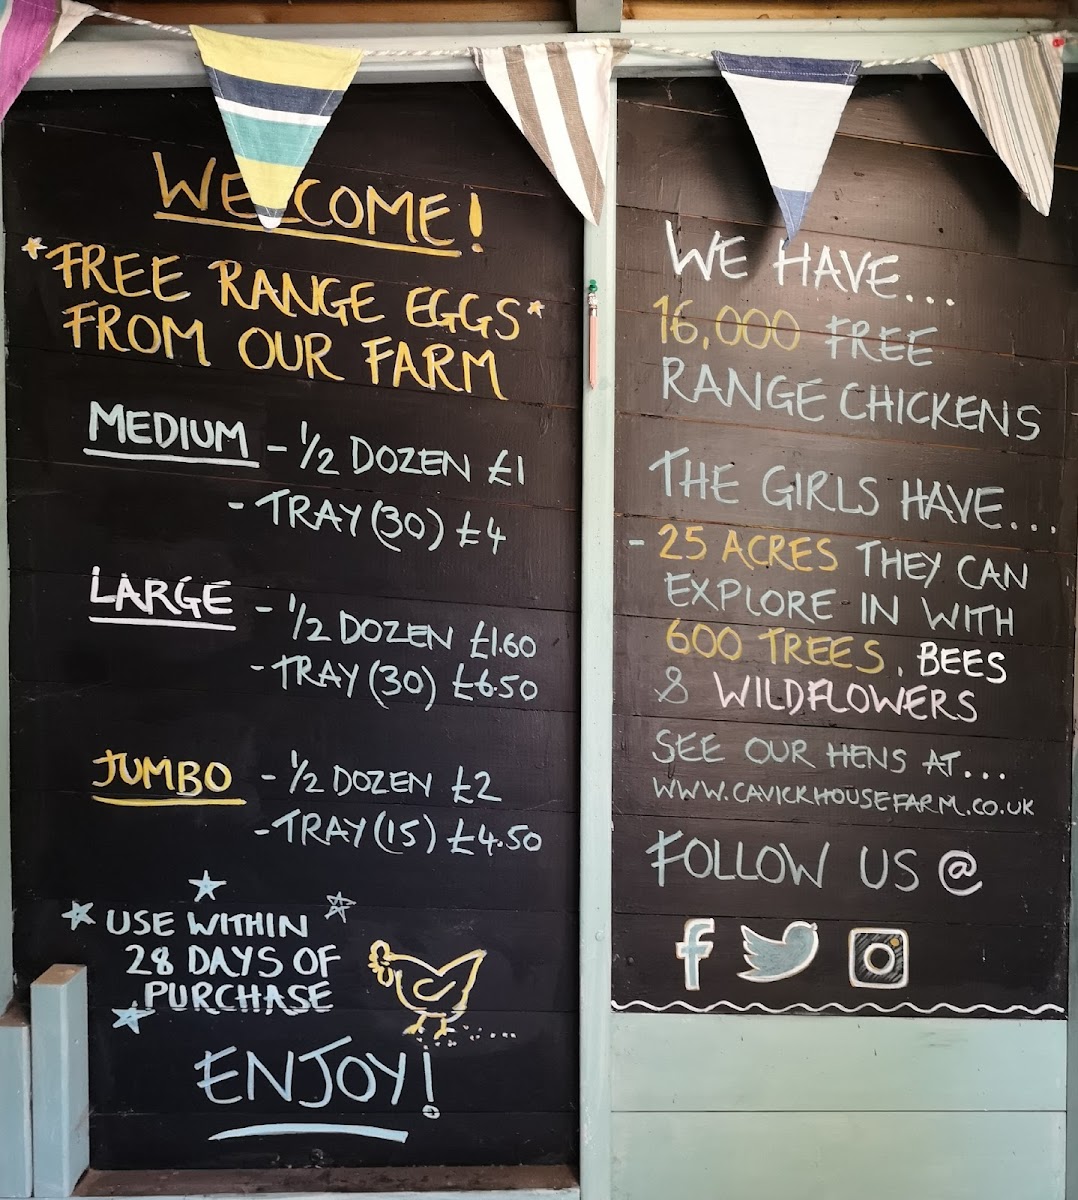 WELCOME!
*FREE RANGE EGGS*
FROM OUR FARM
MEDIUM - 1/2 DOZEN £1
- TRAY (30) £4
LARGE - 1/2 DOZEN £1.60
- TRAY (30) £6.50
JUMBO - 1/2 DOZEN £2
- TRAY (15) £4.50
USE WITHIN
28 DAYS OF
PURCHASE
ENJOY!
WE HAVE...
16,000 FREE
RANGE CHICKENS
THE GIRLS HAVE...
- 25 ACRES THEY CAN
EXPLORE IN WITH
600 TREES, BEES
& WILDFLOWERS
SEE OUR HENS AT...
WWW.CAVICKHOUSEFARM.CO.UK
FOLLOW US @